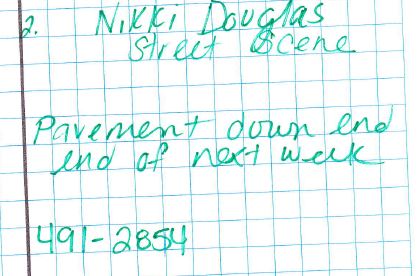 2. Nikki Douglas
Street Scene
Pavement down end
end of next week
491-2854